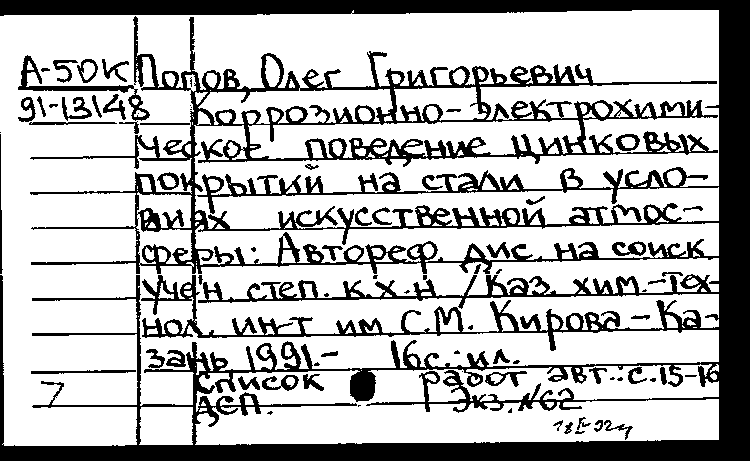 А-50К Попов, Олег Григорьевич
91-13148 Коррозионно-электрохими-
ческое поведение цинковых
покрытий на стали в усло-
виях искусственной атмос-
феры: Автореф. дис. на соиск.
учен. степ. к.х.н / Каз. хим.-тех-
нол. ин-т им. С.М. Кирова - Ка-
зань, 1991.- 16с.: ил.
Список работ авт.: с.15-16
7 ДСП. Экз. №62